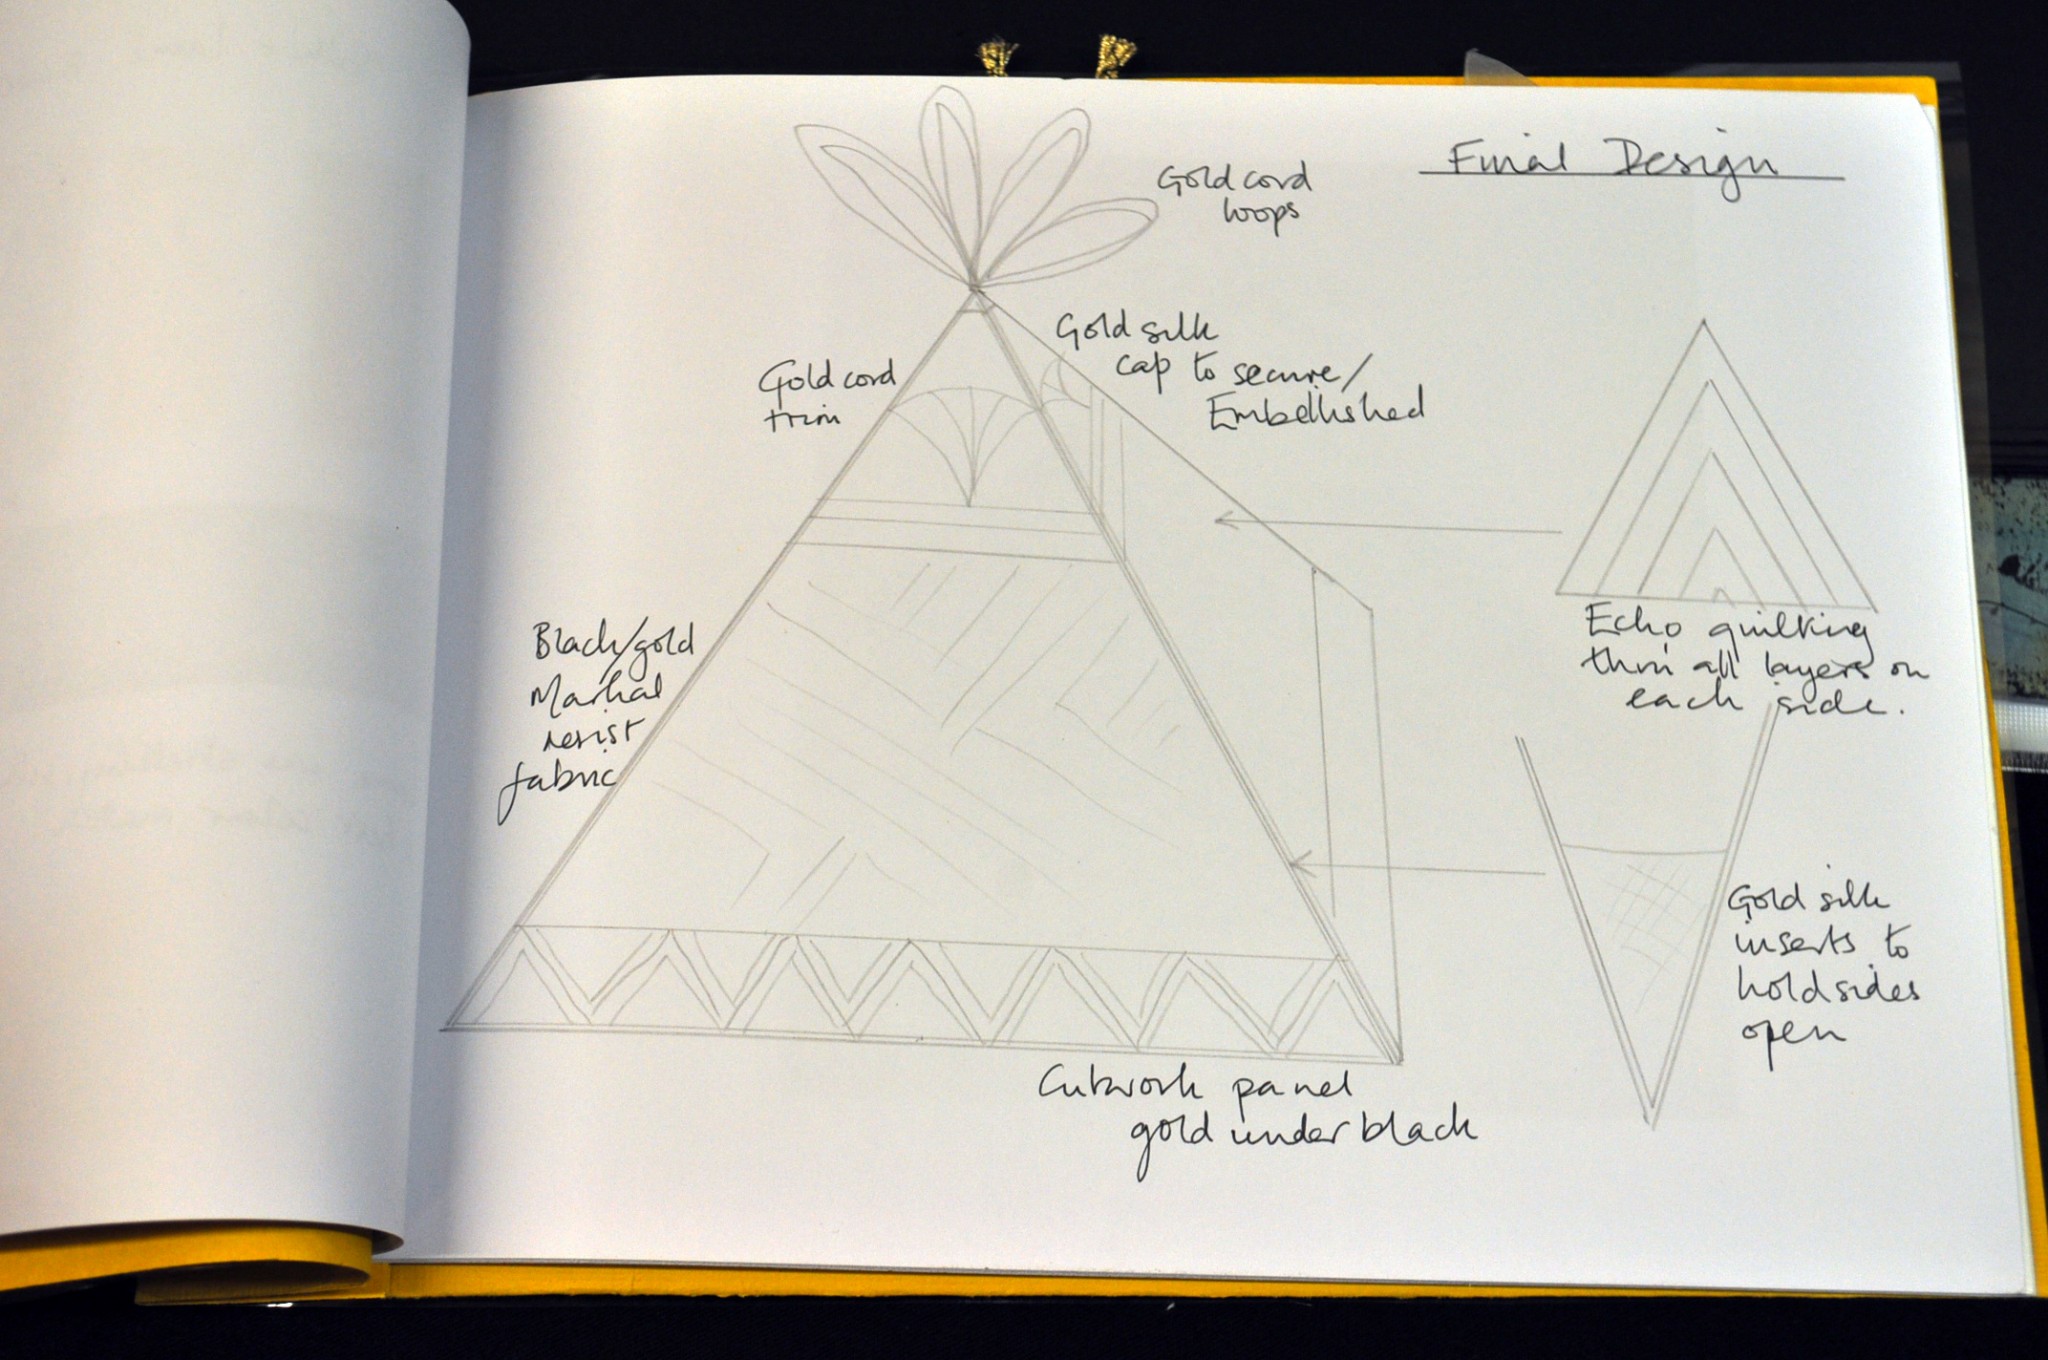 Final Design
Gold cord
loops
Gold silk
cap to secure/
Embellished
Gold cord
trim
Black/gold
resist
fabric
Echo quilting
thru all layers on
each side.
Gold silk
inserts to
hold sides
open
Cutwork panel
gold under black